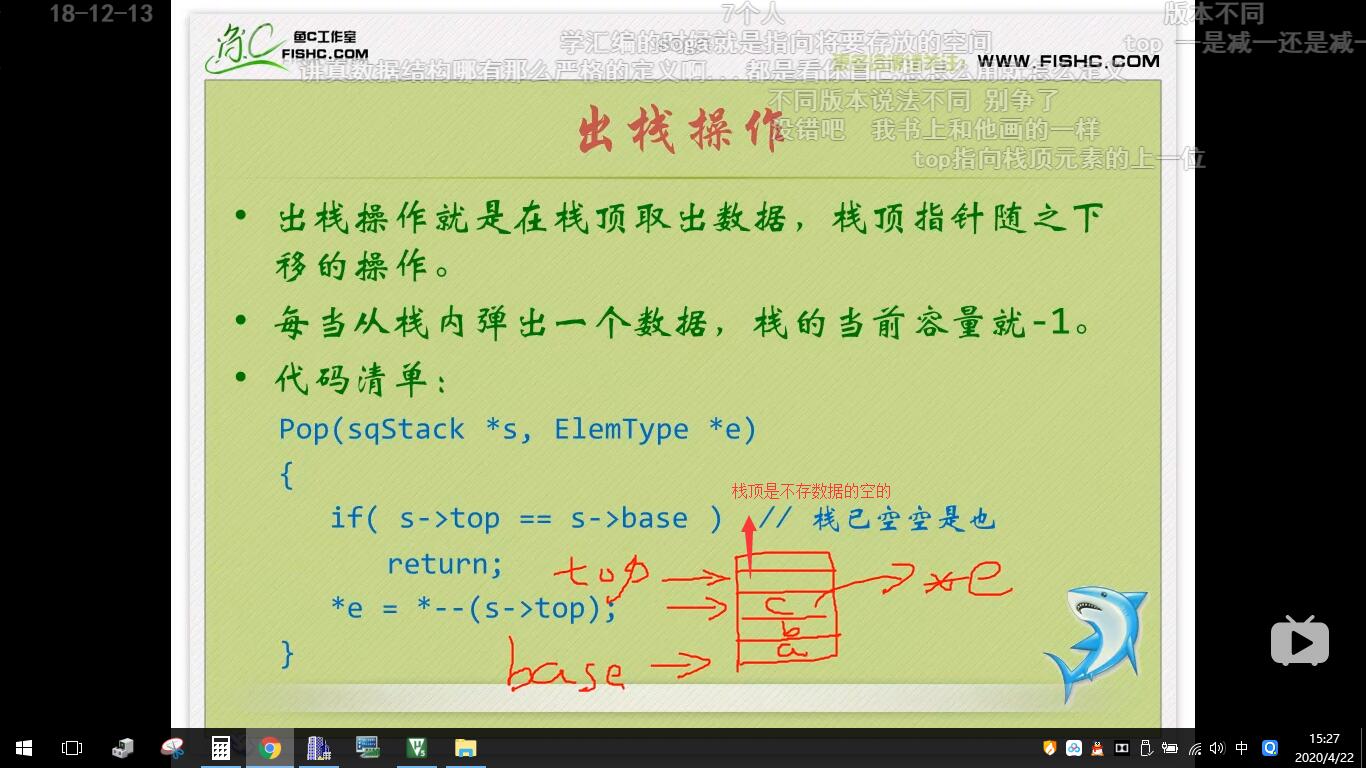 18-12-13
7个人
版本不同
鱼C工作室
FISHC.COM
学汇编的时候就是指向将要存放的空间
top 一是减一还是减一
WWW.FISHC.COM
讲真数据结构哪有那么严格的定义啊...都是看你自己想怎么用就怎么定义
不同版本说法不同 别争了
没错吧 我书上和他画的一样
top指向栈顶元素的上一位
出栈操作
• 出栈操作就是在栈顶取出数据，栈顶指针随之下
移的操作。
• 每当从栈内弹出一个数据，栈的当前容量就-1。
• 代码清单：
Pop(sqStack *s, ElemType *e)
{
栈顶是不存数据的空的
if( s->top == s->base ) // 栈已空空是也
return;
top
*e
*e = *--(s->top);
c
b
a
}
base
15:27
中
2020/4/22